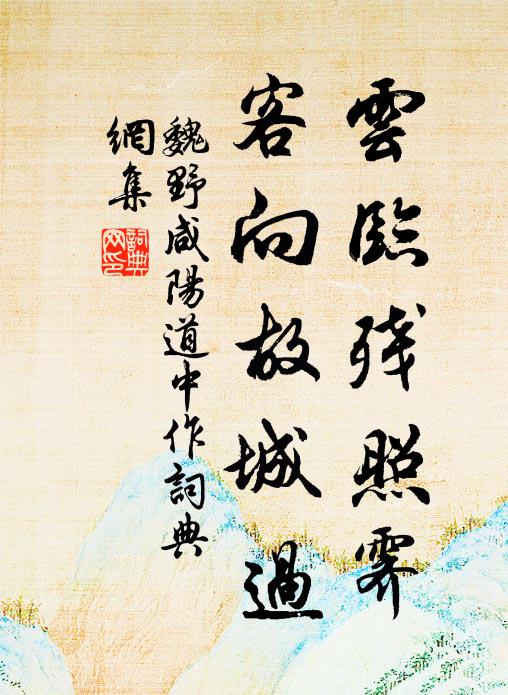 雲臨残照霽
客向故城過
魏野咸陽道中作詞典
網集
詞典
网印